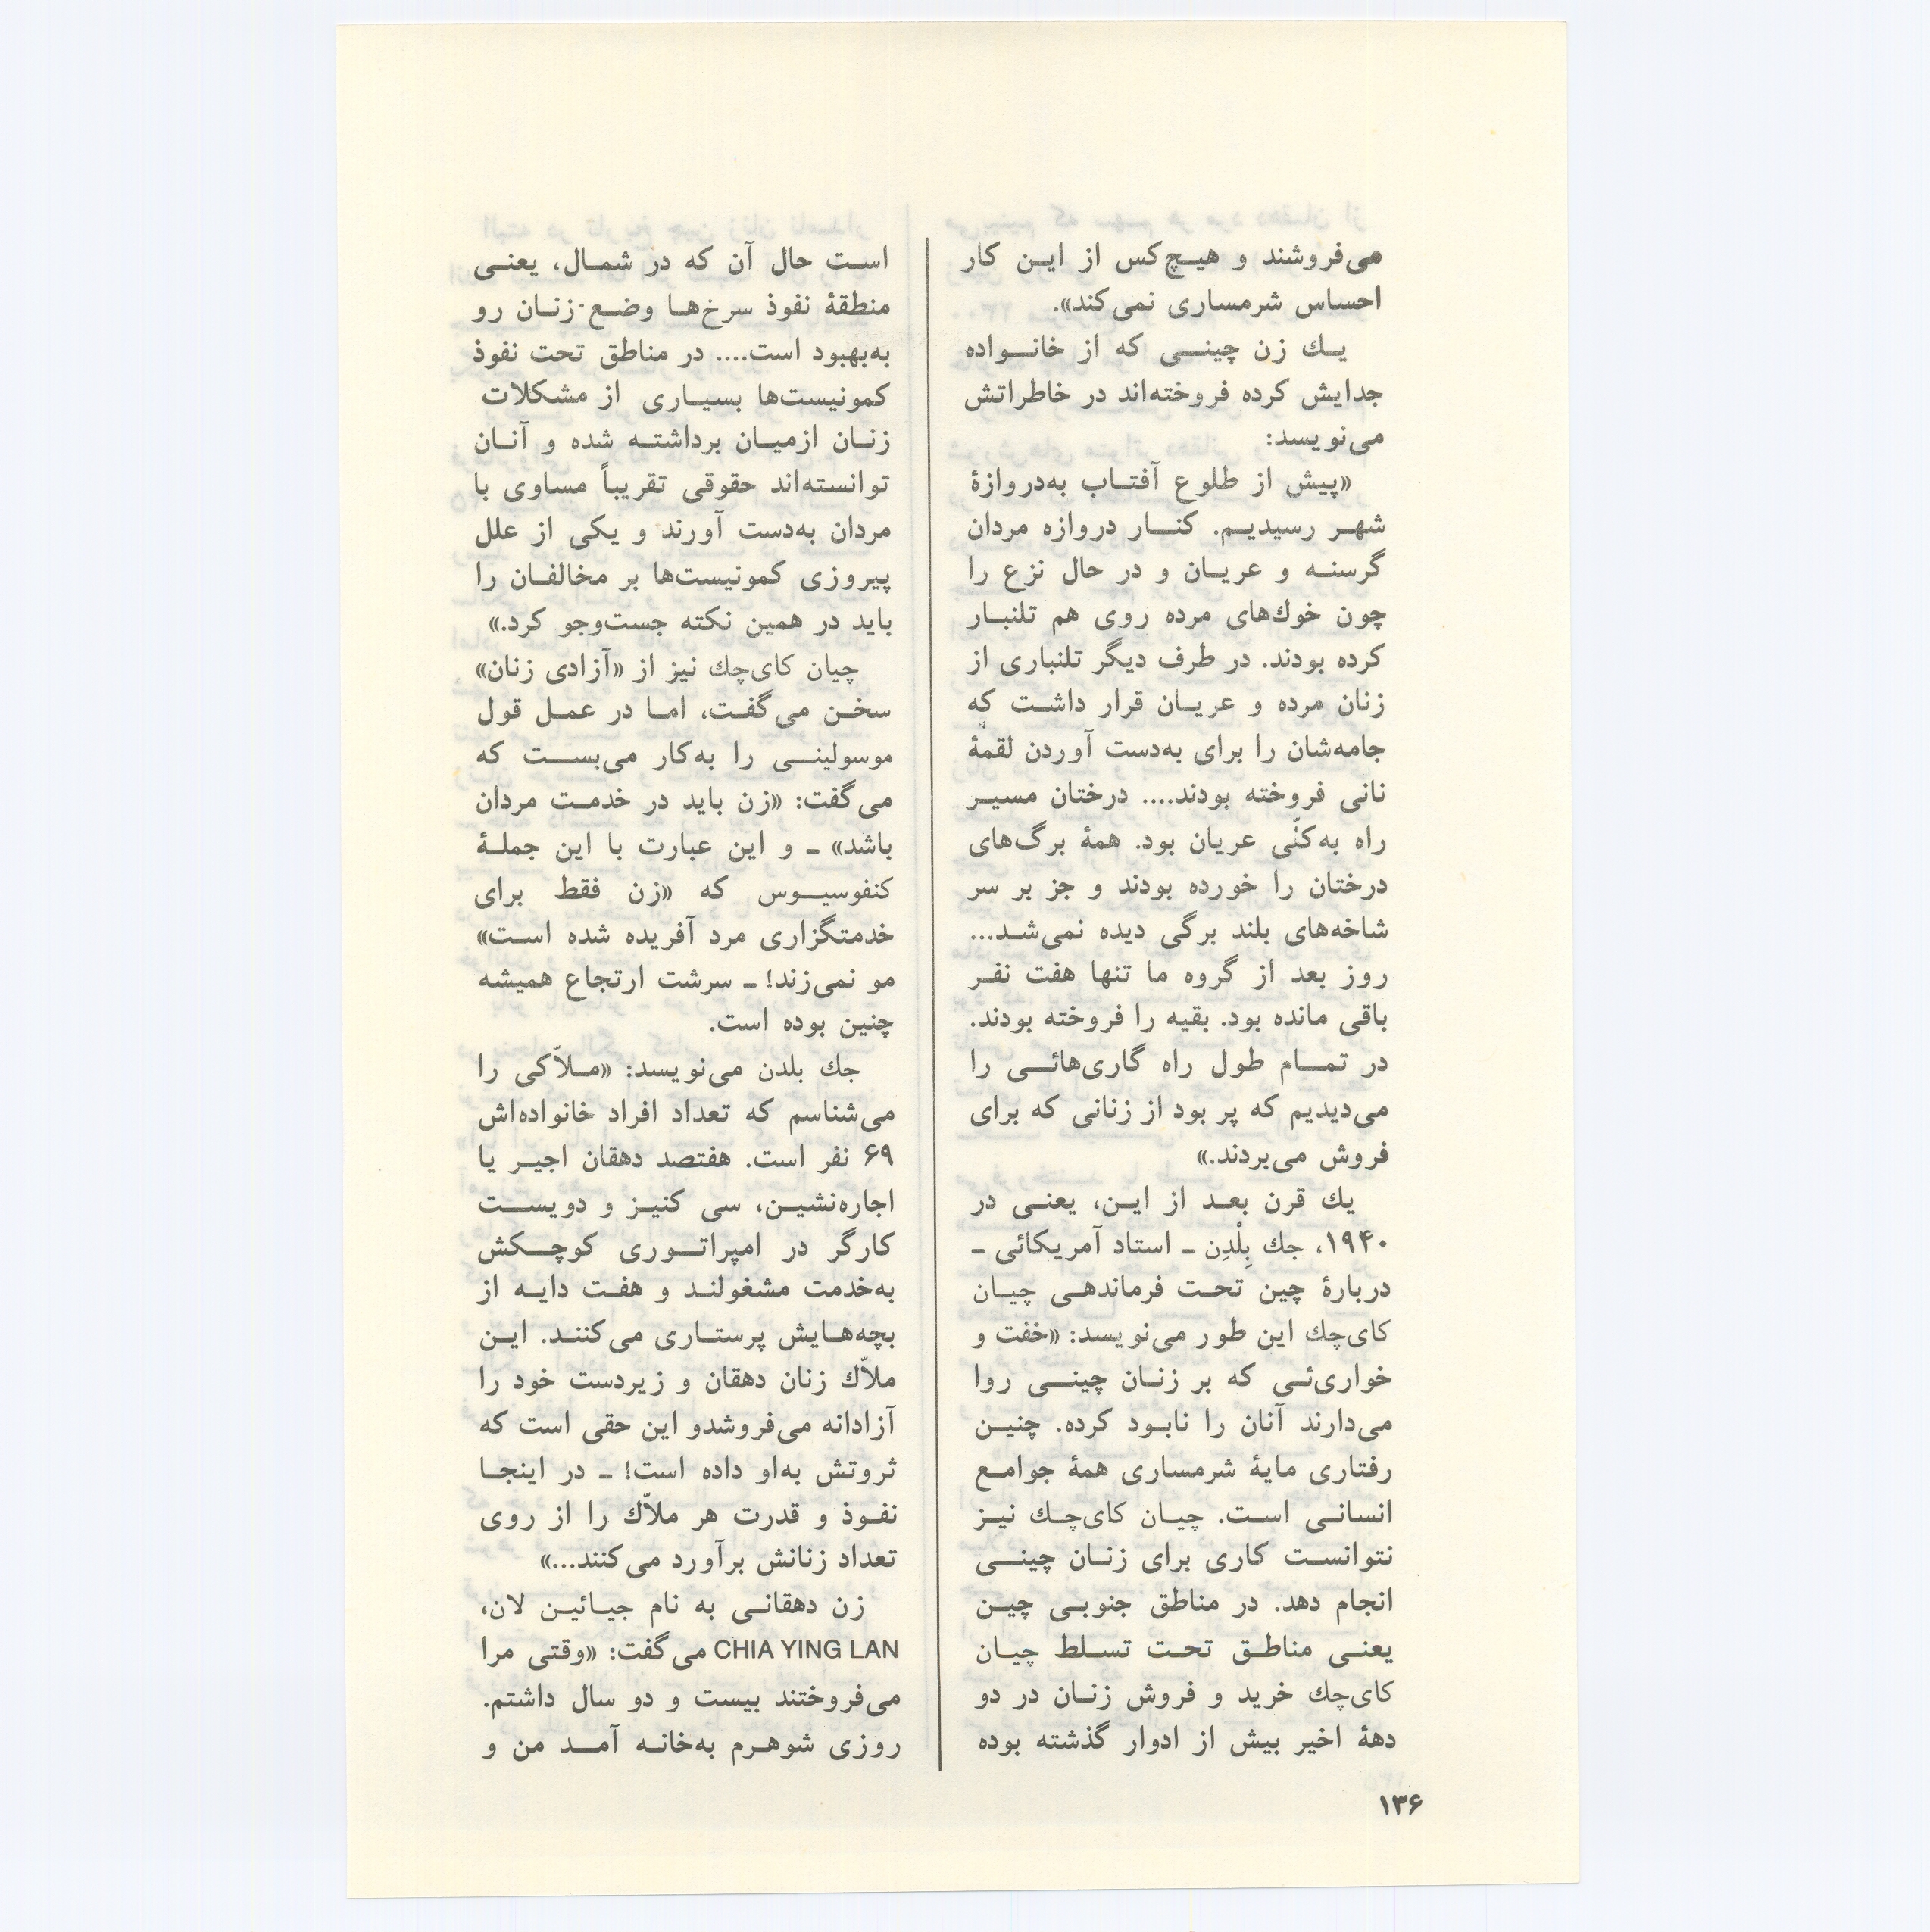 می‌فروشند و هیچ‌کس از این کار
احساس شرمساری نمی‌کند».
یك زن چینی که از خانواده
جدایش کرده فروخته‌اند در خاطراتش
می‌نویسد:
«پیش از طلوع آفتاب به‌دروازهٔ
شهر رسیدیم. کنار دروازه مردان
گرسنه و عریان و در حال نزع را
چون خوك‌های مرده روی هم تلنبار
کرده بودند. در طرف دیگر تلنباری از
زنان مرده و عریان قرار داشت که
جامه‌شان را برای به‌دست آوردن لقمهٔ
نانی فروخته بودند.... درختان مسیر
راه به‌کلّی عریان بود. همهٔ برگ‌های
درختان را خورده بودند و جز بر سر
شاخه‌های بلند برگی دیده نمی‌شد...
روز بعد از گروه ما تنها هفت نفر
باقی مانده بود. بقیه را فروخته بودند.
در تمام طول راه گاری‌هائی را
می‌دیدیم که پر بود از زنانی که برای
فروش می‌بردند.»
یك قرن بعد از این، یعنی در
۱۹۴۰، جك بِلْدِن ـ استاد آمریکائی ـ
دربارهٔ چین تحت فرماندهی چیان
کای‌چك این طور می‌نویسد: «خفت و
خواری‌ئی که بر زنان چینی روا
می‌دارند آنان را نابود کرده. چنین
رفتاری مایهٔ شرمساری همهٔ جوامع
انسانی است. چیان کای‌چك نیز
نتوانست کاری برای زنان چینی
انجام دهد. در مناطق جنوبی چین
یعنی مناطق تحت تسلط چیان
کای‌چك خرید و فروش زنان در دو
دههٔ اخیر بیش از ادوار گذشته بوده
است حال آن که در شمال، یعنی
منطقهٔ نفوذ سرخ‌ها وضع زنان رو
به‌بهبود است.... در مناطق تحت نفوذ
کمونیست‌ها بسیاری از مشکلات
زنان ازمیان برداشته شده و آنان
توانسته‌اند حقوقی تقریباً مساوی با
مردان به‌دست آورند و یکی از علل
پیروزی کمونیست‌ها بر مخالفان را
باید در همین نکته جست‌وجو کرد.»
چیان کای‌چك نیز از «آزادی زنان»
سخن می‌گفت، اما در عمل قول
موسولینی را به‌کار می‌بست که
می‌گفت: «زن باید در خدمت مردان
باشد» ـ و این عبارت با این جملهٔ
کنفوسیوس که «زن فقط برای
خدمتگزاری مرد آفریده شده است»
مو نمی‌زند! ـ سرشت ارتجاع همیشه
چنین بوده است.
جك بلدن می‌نویسد: «ملاّکی را
می‌شناسم که تعداد افراد خانواده‌اش
۶۹ نفر است. هفتصد دهقان اجیر یا
اجاره‌نشین، سی کنیز و دویست
کارگر در امپراتوری کوچکش
به‌خدمت مشغولند و هفت دایه از
بچه‌هایش پرستاری می‌کنند. این
ملاّك زنان دهقان و زیردست خود را
آزادانه می‌فروشدو این حقی است که
ثروتش به‌او داده است! ـ در اینجا
نفوذ و قدرت هر ملاّك را از روی
تعداد زنانش برآورد می‌کنند...»
زن دهقانی به نام جیائین لان،
CHIA YING LAN می‌گفت: «وقتی مرا
می‌فروختند بیست و دو سال داشتم.
روزی شوهرم به‌خانه آمد من و
۱۳۶